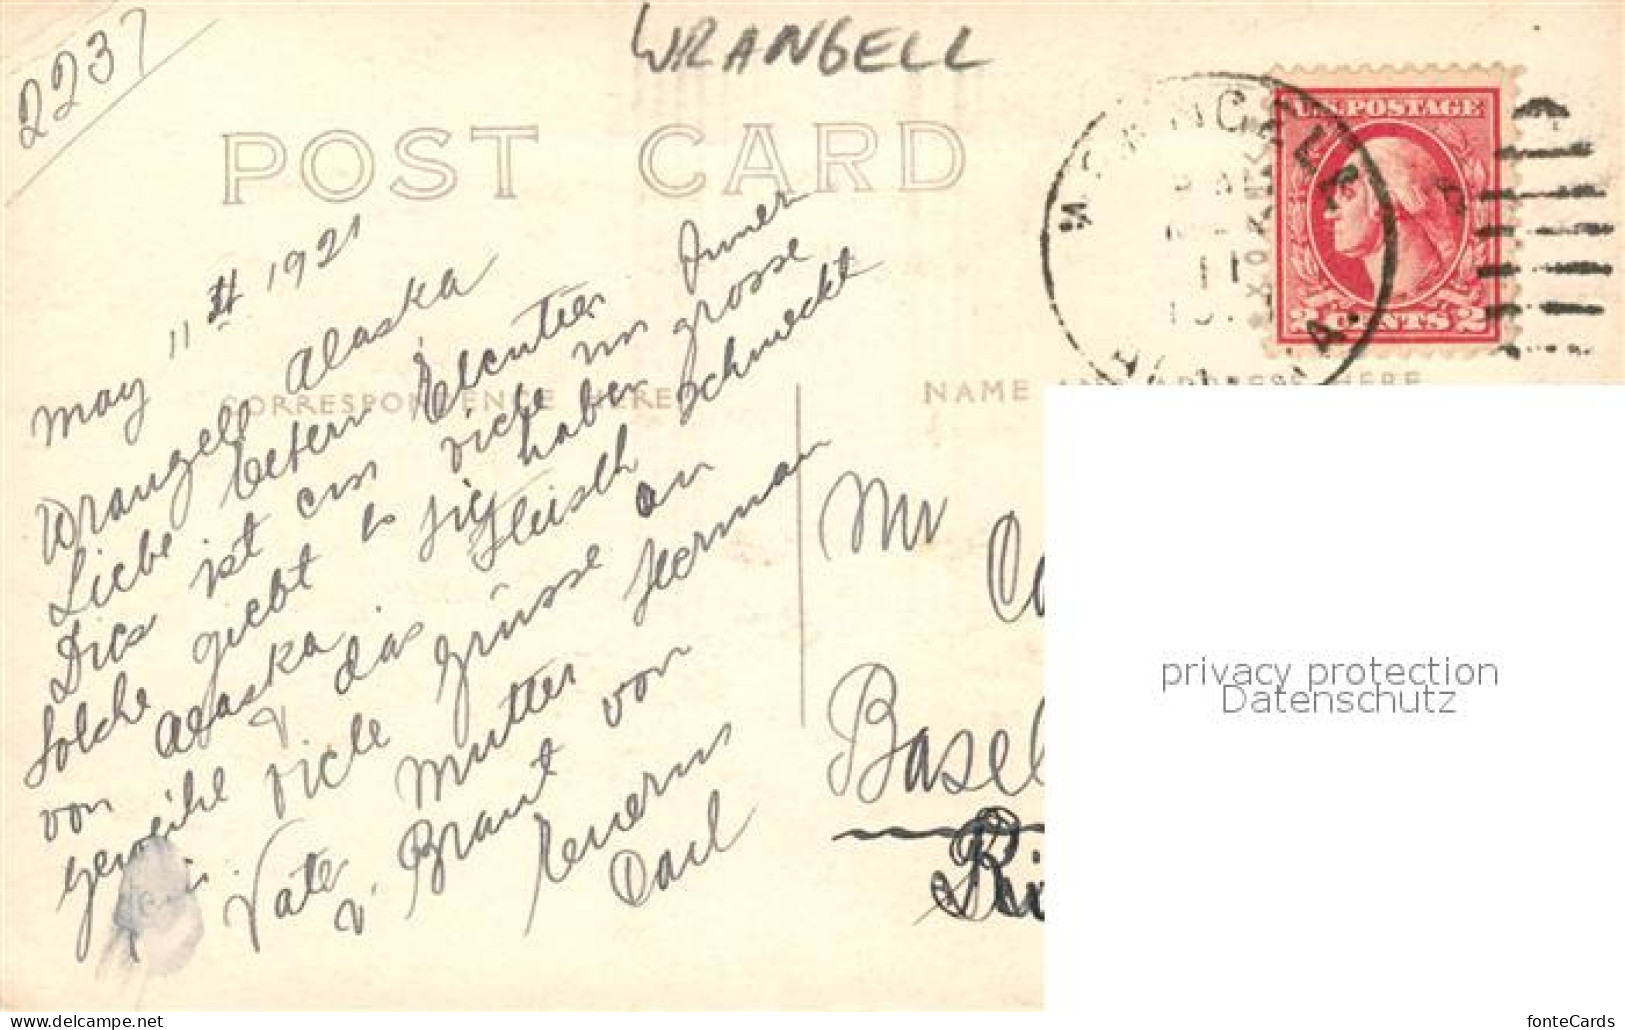 2237
WRANGELL
POST CARD
U.S. POSTAGE
2 CENTS 2
WRANGELL
11
CORRESPONDENCE HERE
NAME AND ADDRESS HERE
May 11th 1921
Wrangell Alaska
Liebe Eltern
Dies ist ein Elentier
solche giebt es viele im Inner
von Alaska sie haben grosse
geweihe u das Fleisch schmeckt
fein. viele grüsse an
Vater Mutter Herman
u Braut von
Euerm
Carl
Mr
Ca
Basel
Ri
privacy protection
Datenschutz
www.delcampe.net
fonteCards